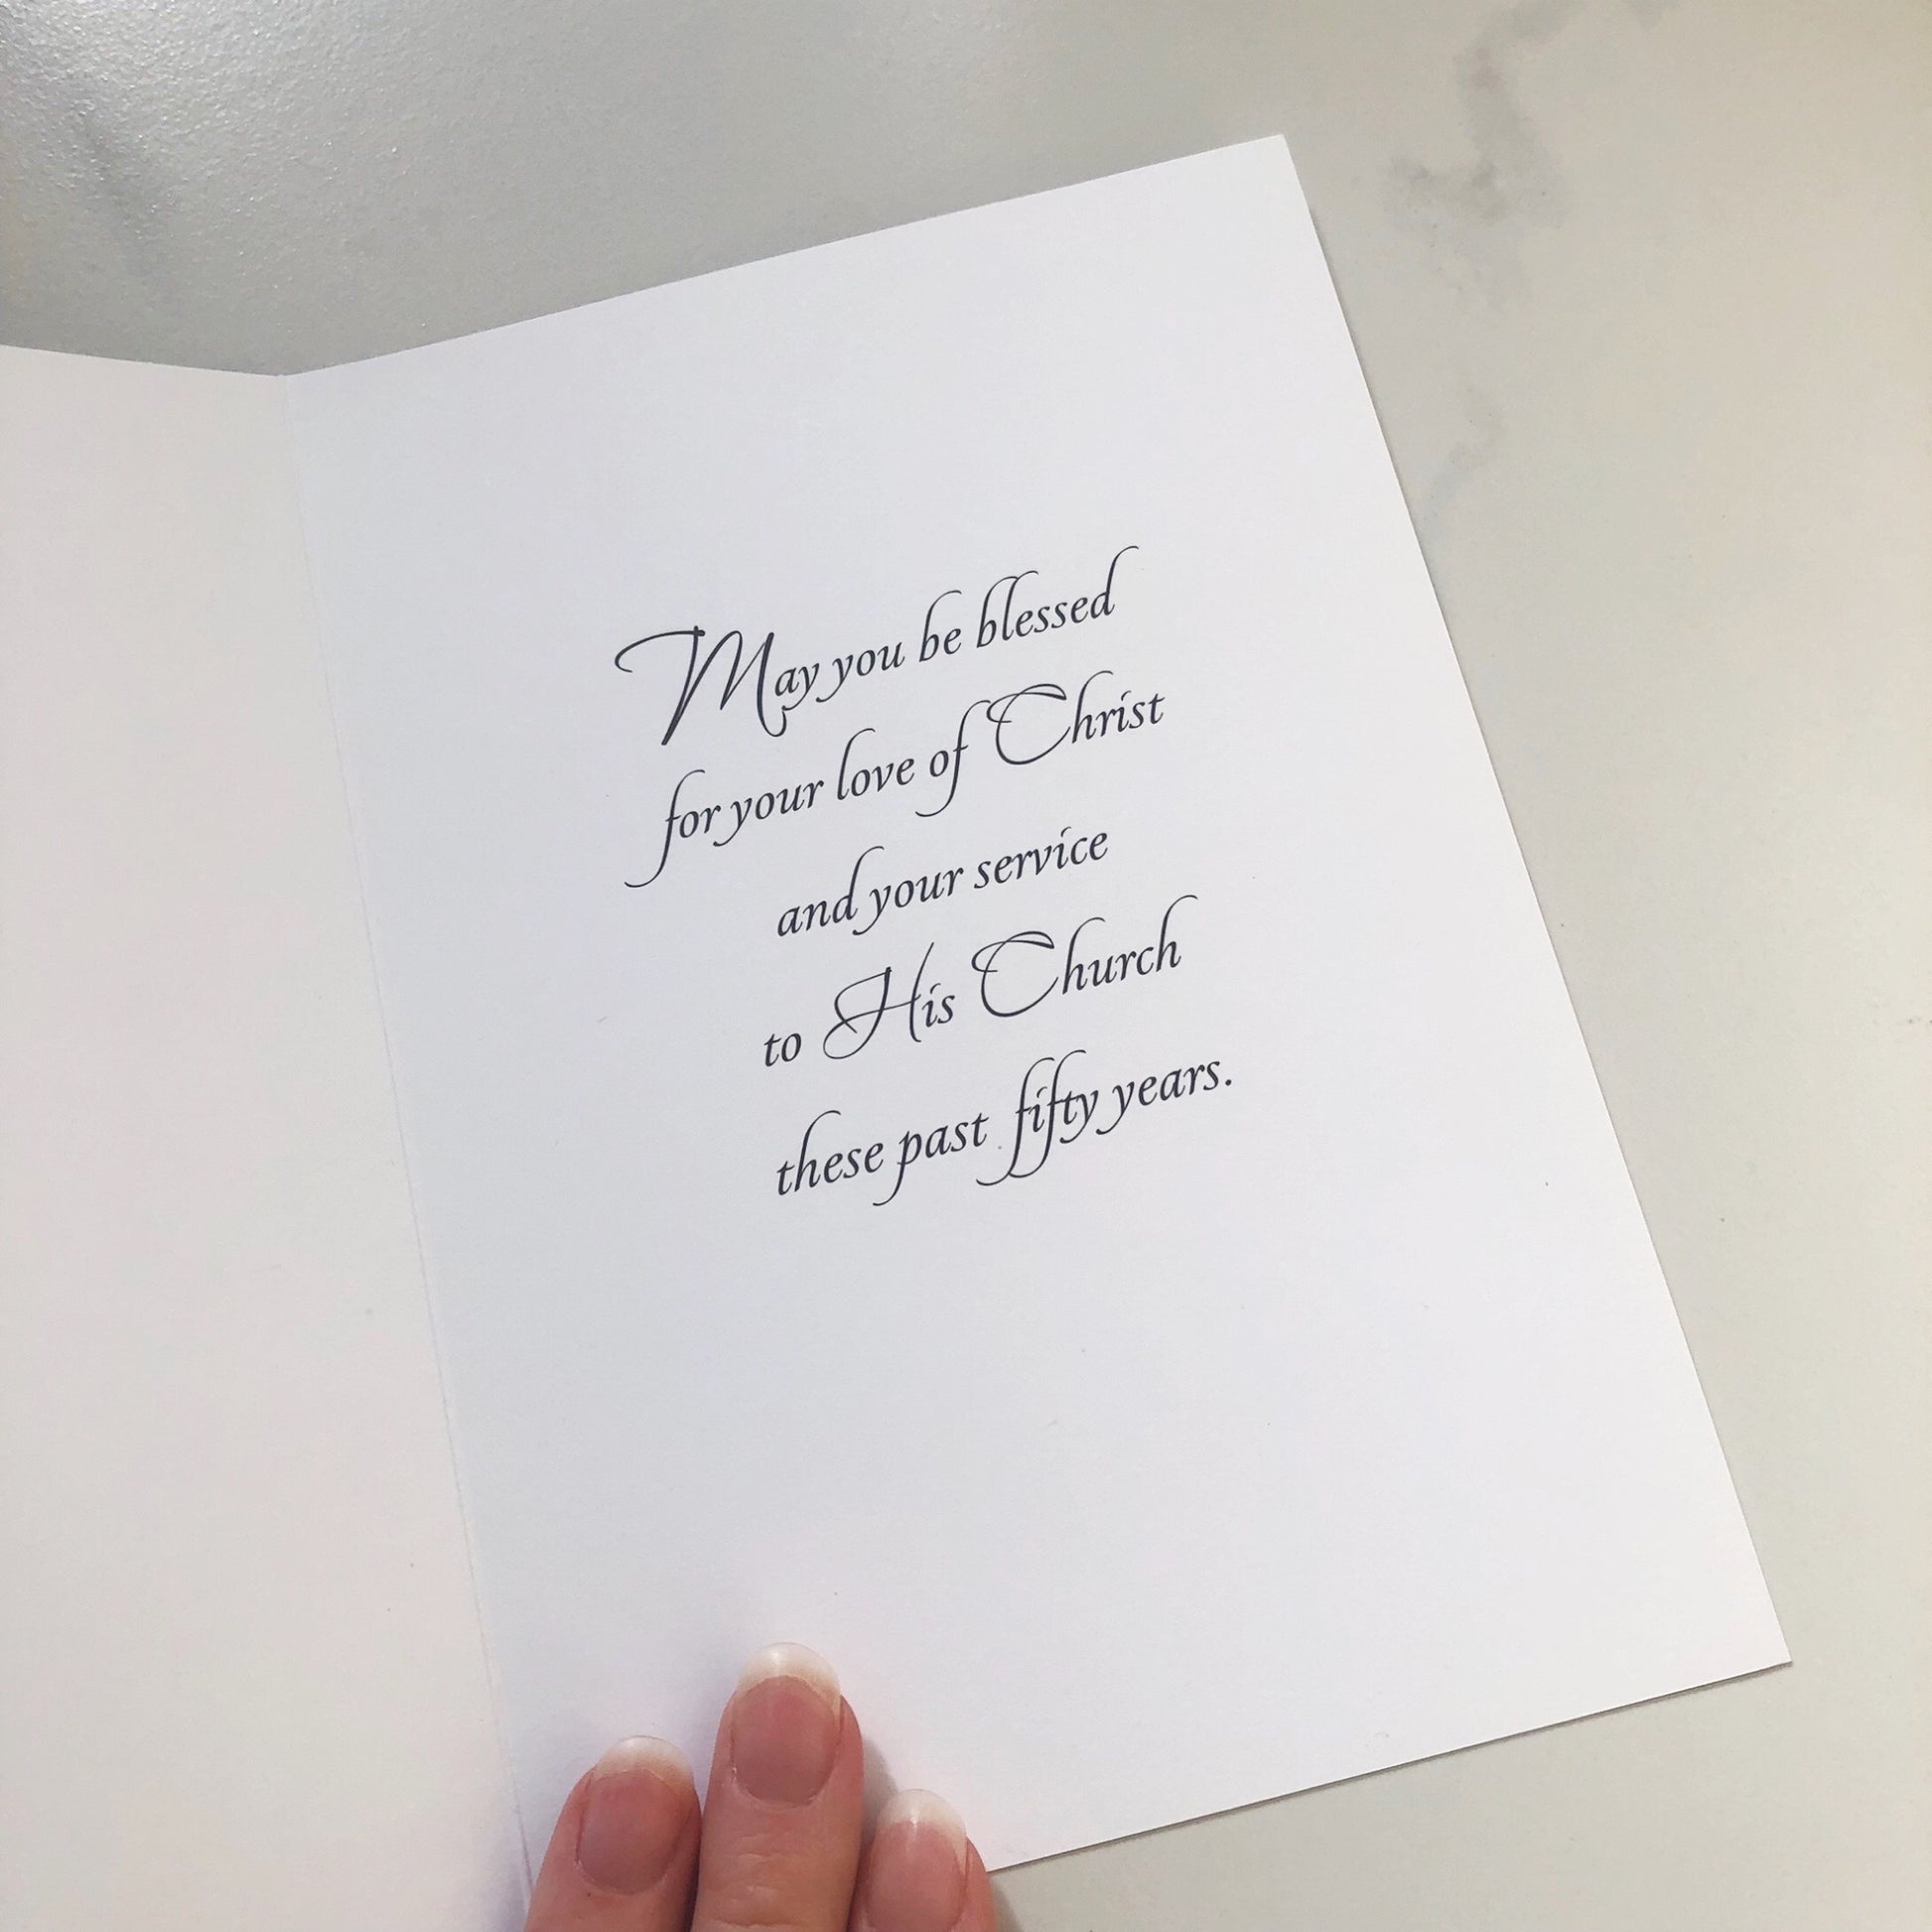 May you be blessed
for your love of Christ
and your service
to His Church
these past fifty years.